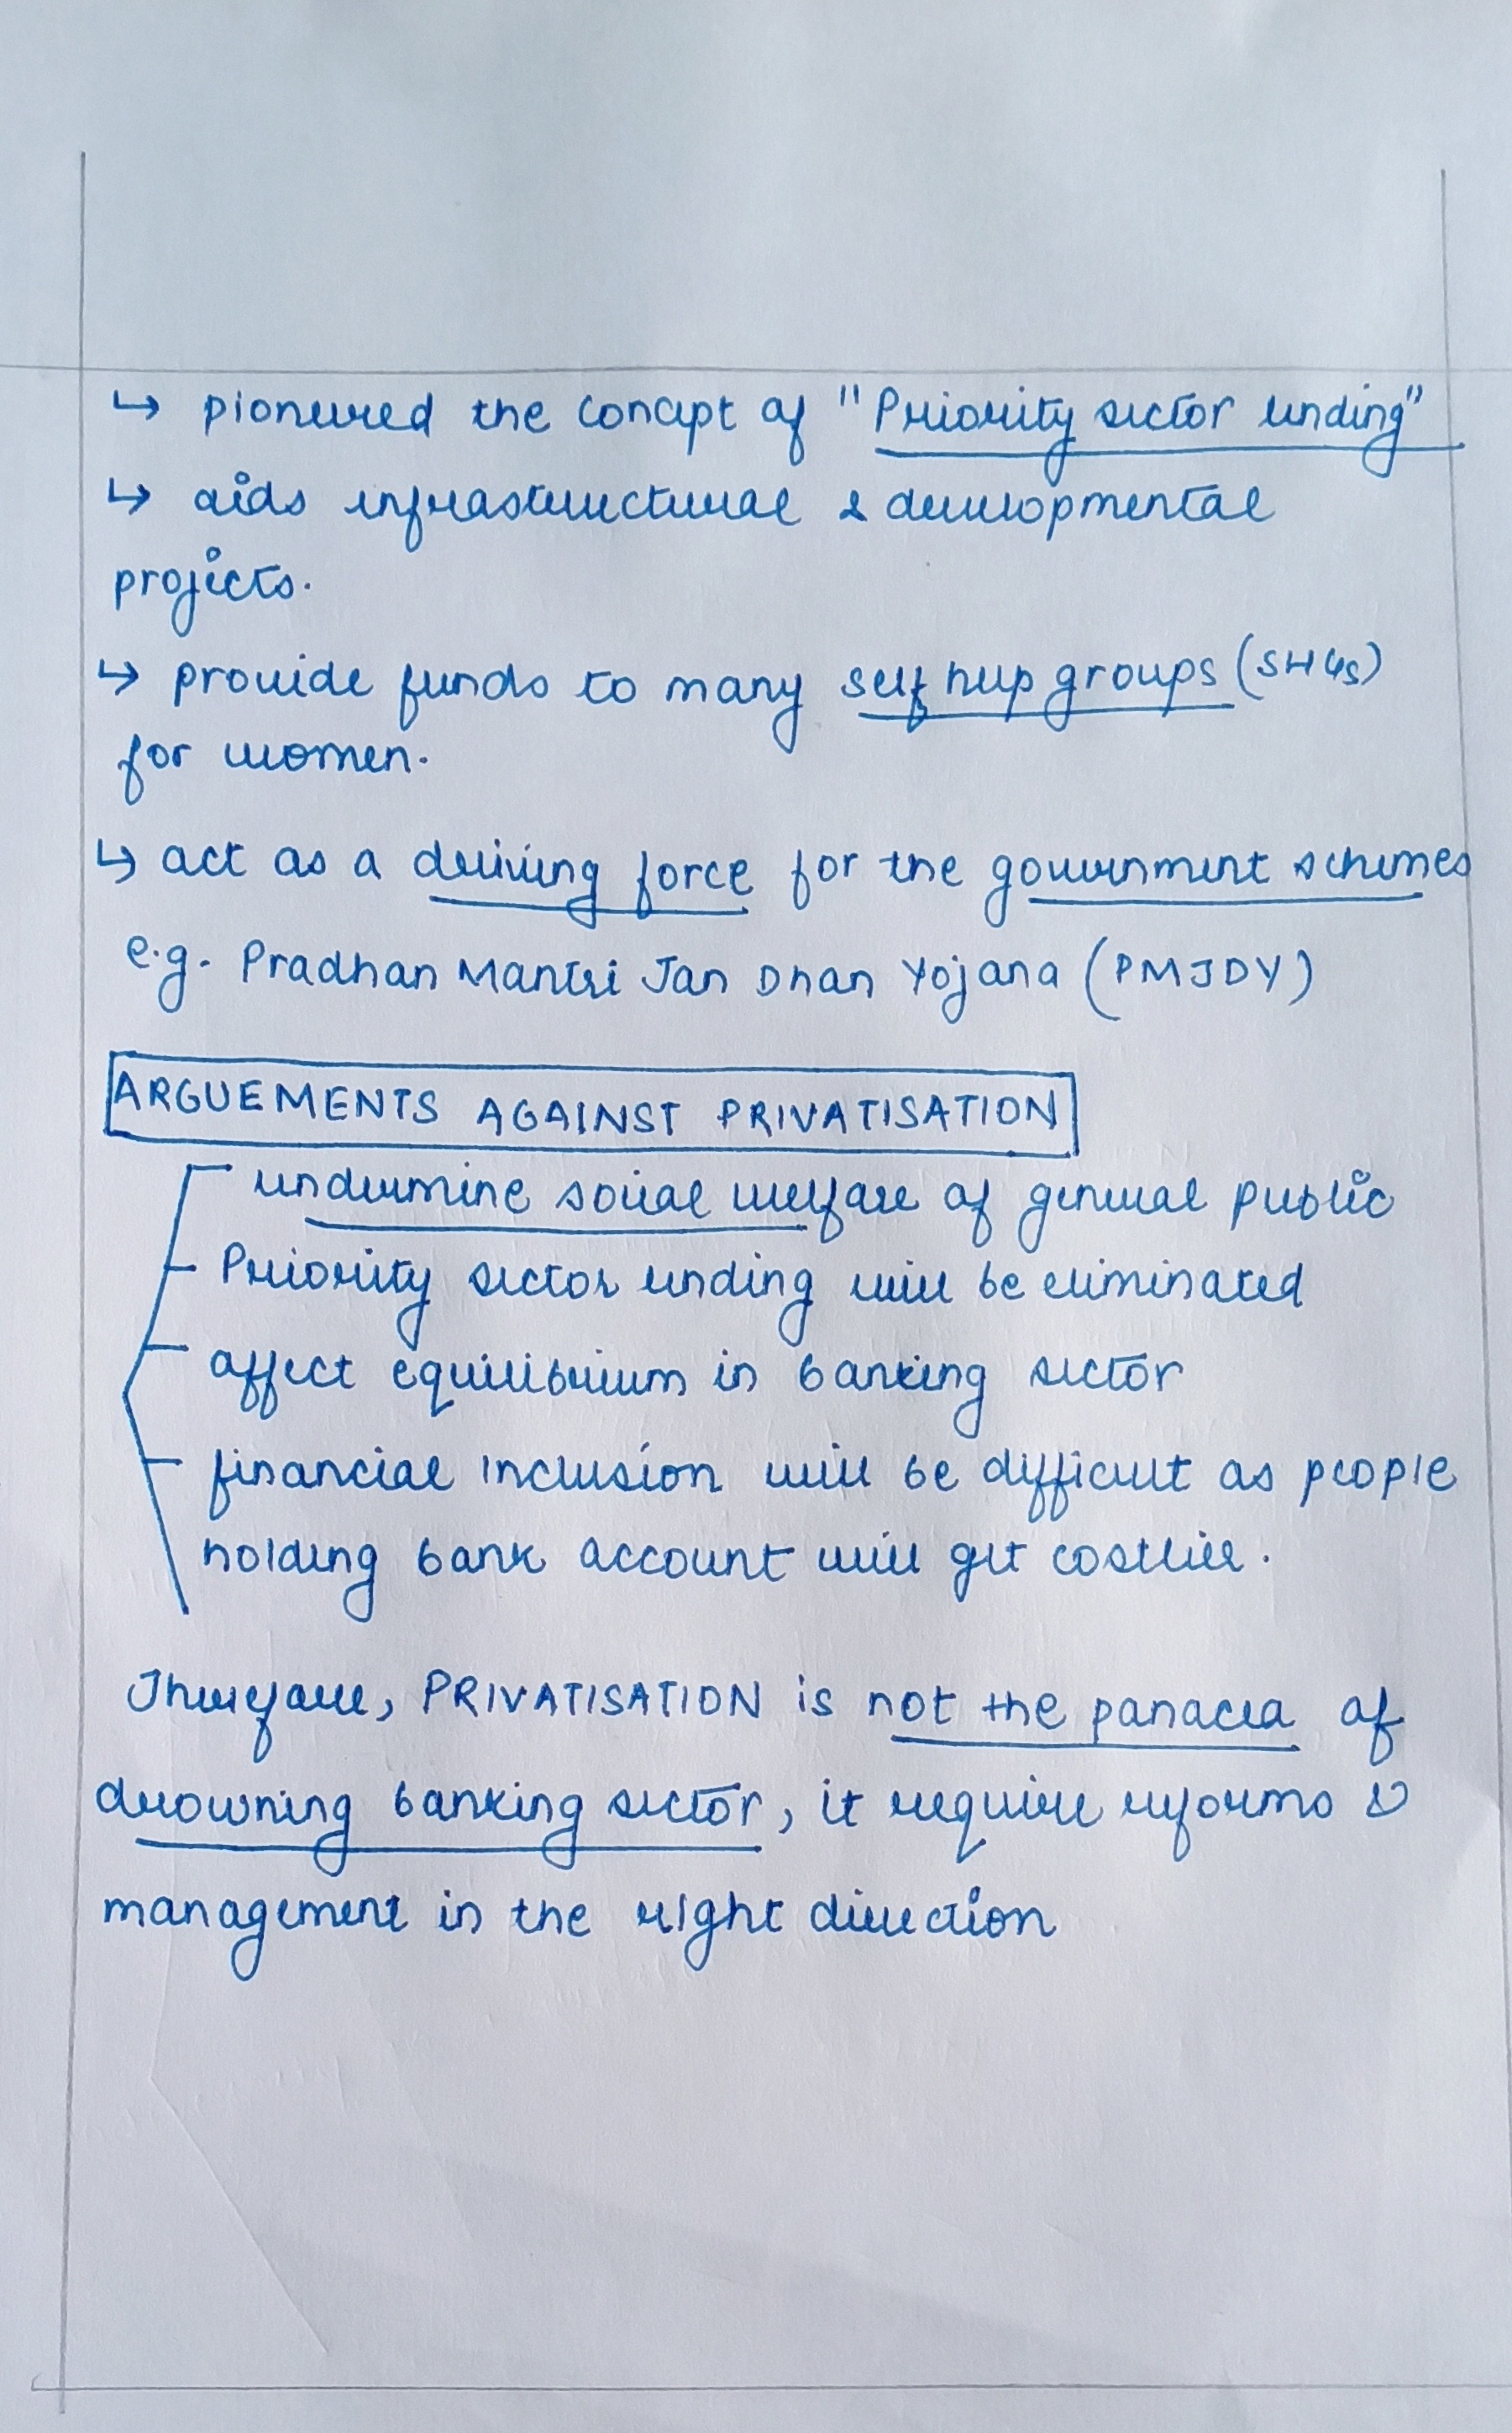 ↳ pioneered the concept of "Priority sector lending"
↳ aids infrastructural & developmental
projects.
↳ provide funds to many self help groups (SHGs)
for women.
↳ act as a driving force for the government schemes
e.g. Pradhan Mantri Jan Dhan Yojana (PMJDY)
ARGUEMENTS AGAINST PRIVATISATION
undermine social welfare of general public
Priority sector lending will be eliminated
affect equilibrium in banking sector
financial inclusion will be difficult as people
holding bank account will get costlier.
Therefore, PRIVATISATION is not the panacea of
drowning banking sector, it require reforms &
management in the right direction